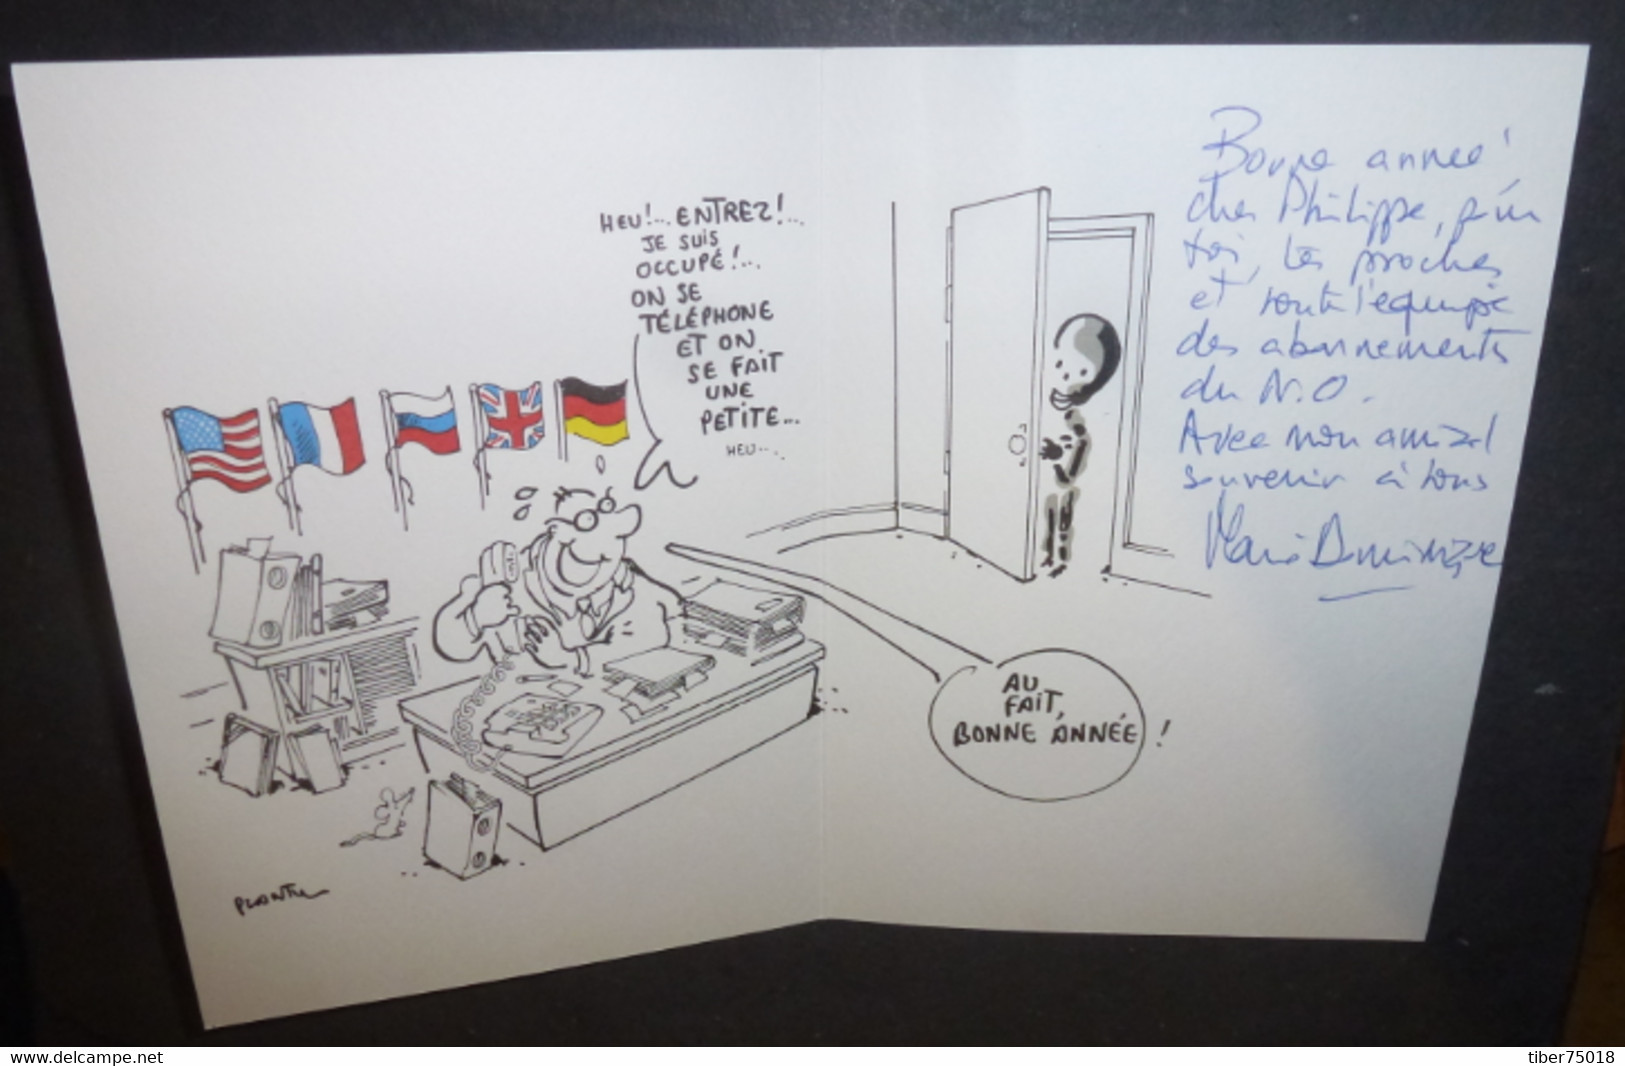 HEU!... ENTREZ!...
JE SUIS
OCCUPÉ!...
ON SE
TÉLÉPHONE
ET ON
SE FAIT
UNE
PETITE...
HEU...
AU
FAIT,
BONNE ANNÉE !
PLANTU
Bonne année
cher Philippe, pour
toi, tes proches
et toute l'équipe
des abonnements
du N.O.
Avec mon amical
souvenir à tous
Marie Dominique
www.delcampe.net
tiber75018